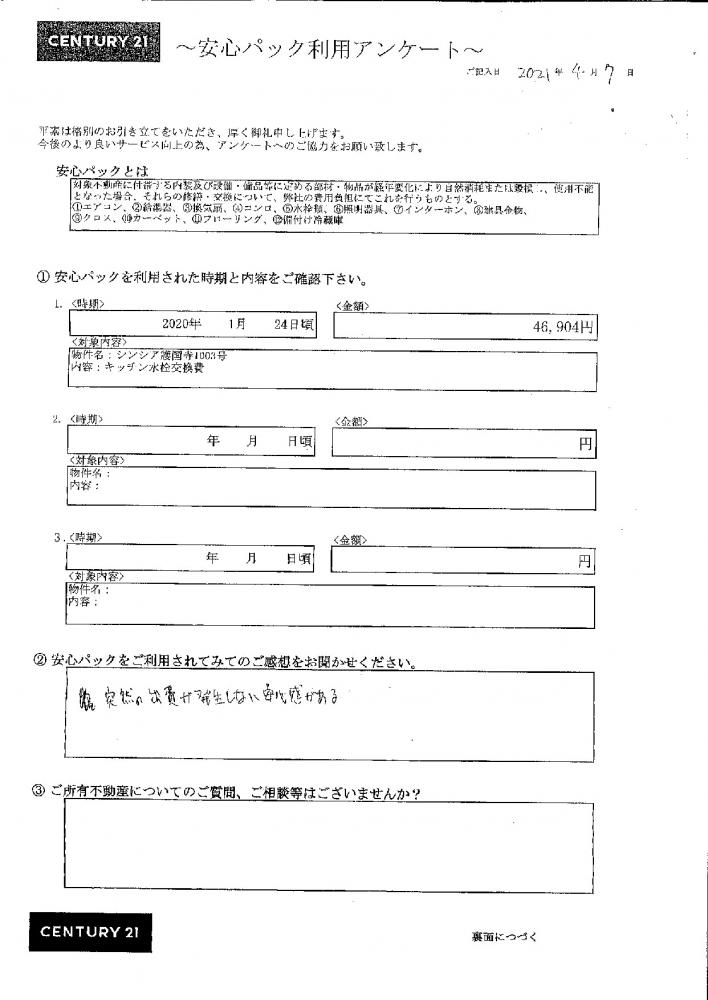 CENTURY 21
～安心パック利用アンケート～
ご記入日 2021年 4月 7日
平素は格別のお引き立てをいただき、厚く御礼申し上げます。
今後のより良いサービス向上の為、アンケートへのご協力をお願い致します。
安心パックとは
対象不動産に付帯する内装及び設備・備品等に定める部材・物品が経年変化により自然消耗または毀損し、使用不能
となった場合、それらの修繕・交換について、弊社の費用負担にてこれを行うものとする。
①エアコン、②給湯器、③換気扇、④コンロ、⑤水栓類、⑥照明器具、⑦インターホン、⑧建具金物、
⑨クロス、⑩カーペット、⑪フローリング、⑫備付け冷蔵庫
① 安心パックを利用された時期と内容をご確認下さい。
1. <時期>
<金額>
2020年 1月 24日頃
46,904円
<対象内容>
物件名：シンシア護国寺1003号
内容：キッチン水栓交換費
2. <時期>
<金額>
年 月 日頃
円
<対象内容>
物件名：
内容：
3. <時期>
<金額>
年 月 日頃
円
<対象内容>
物件名：
内容：
② 安心パックをご利用されてみてのご感想をお聞かせください。
突然の出費が発生しない安心感がある
③ ご所有不動産についてのご質問、ご相談等はございませんか？
CENTURY 21
裏面につづく